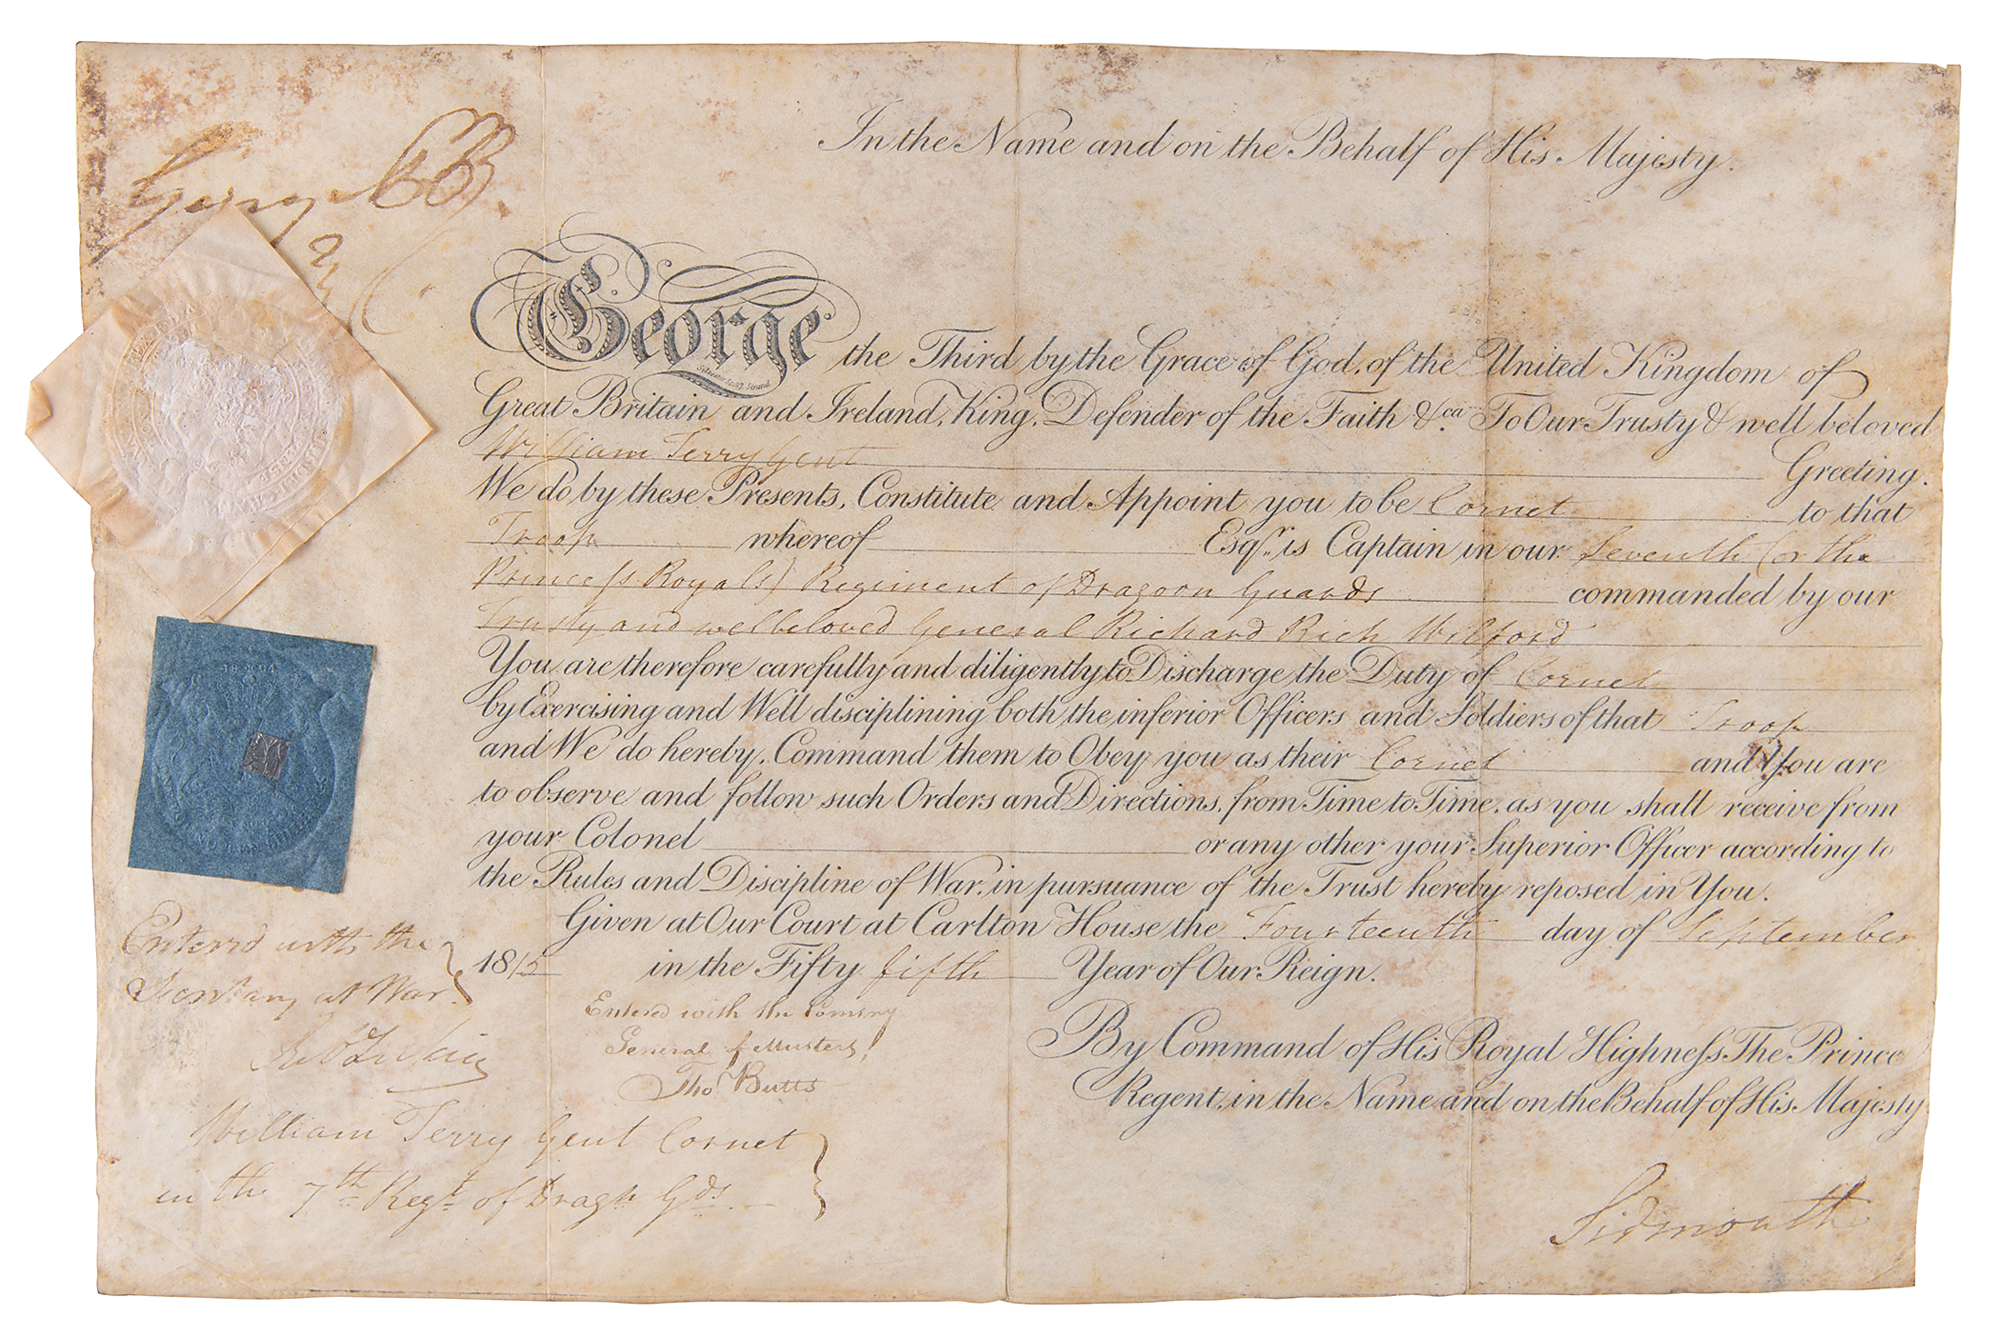 George P R
In the Name and on the Behalf of His Majesty.
George the Third by the Grace of God, of the United Kingdom of
Great Britain and Ireland, King, Defender of the Faith &ca. To Our Trusty & well beloved
William Terry Gent Greeting.
We do by these Presents, Constitute and Appoint you to be Cornet to that
Troop whereof Esqr. is Captain in our Seventh (or the
Princess Royals) Regiment of Dragoon Guards commanded by our
Trusty and welbeloved General Richard Rich Wilford
You are therefore carefully and diligently to Discharge the Duty of Cornet
by Exercising and Well disciplining both the inferior Officers and Soldiers of that Troop
and We do hereby, Command them to Obey you as their Cornet and You are
to observe and follow such Orders and Directions, from Time to Time, as you shall receive from
your Colonel or any other your Superior Officer according to
the Rules and Discipline of War, in pursuance of the Trust hereby reposed in You.
Given at Our Court at Carlton House the Fourteenth day of September
1815 in the Fifty fifth Year of Our Reign.
By Command of His Royal Highness The Prince
Regent, in the Name and on the Behalf of His Majesty
Sidmouth
Entered with the
Secretary at War.
Entered with the Comssry
General of Musters,
Tho Butts
William Terry Gent Cornet
in the 7th Regt. of Dragn Gds.